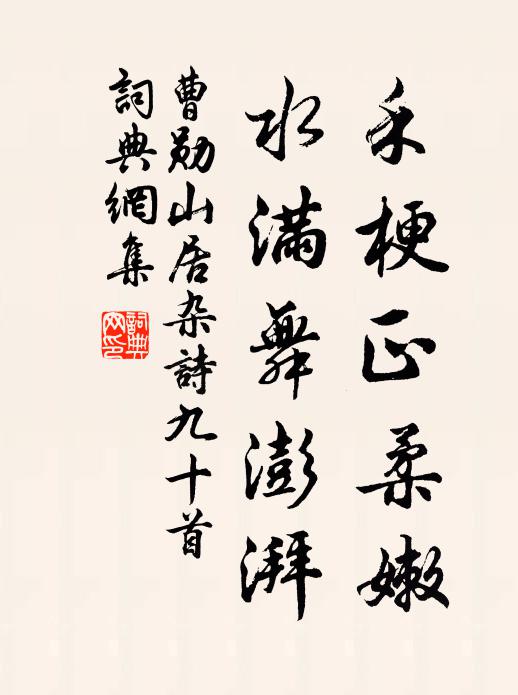 禾梗正柔嫩
水满舞澎湃
曹勋山居杂詩九十首
詞典網集
詞典網印